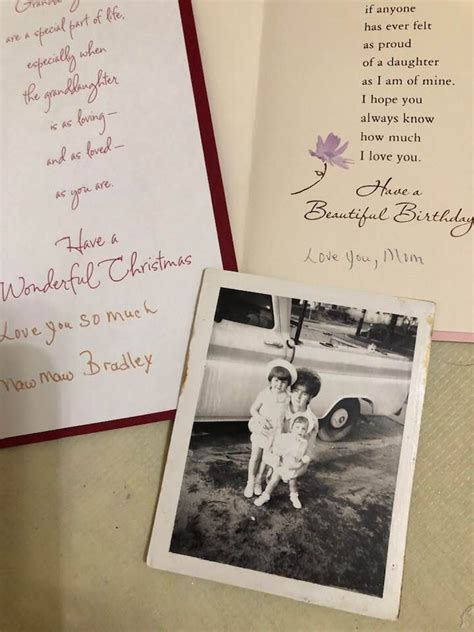 are a special part of life,
especially when
the granddaughter
is as loving—
and as loved—
as you are.
Have a
Wonderful Christmas
Love you so much
Maw Maw Bradley
if anyone
has ever felt
as proud
of a daughter
as I am of mine.
I hope you
always know
how much
I love you.
Have a
Beautiful Birthday
Love You, Mom